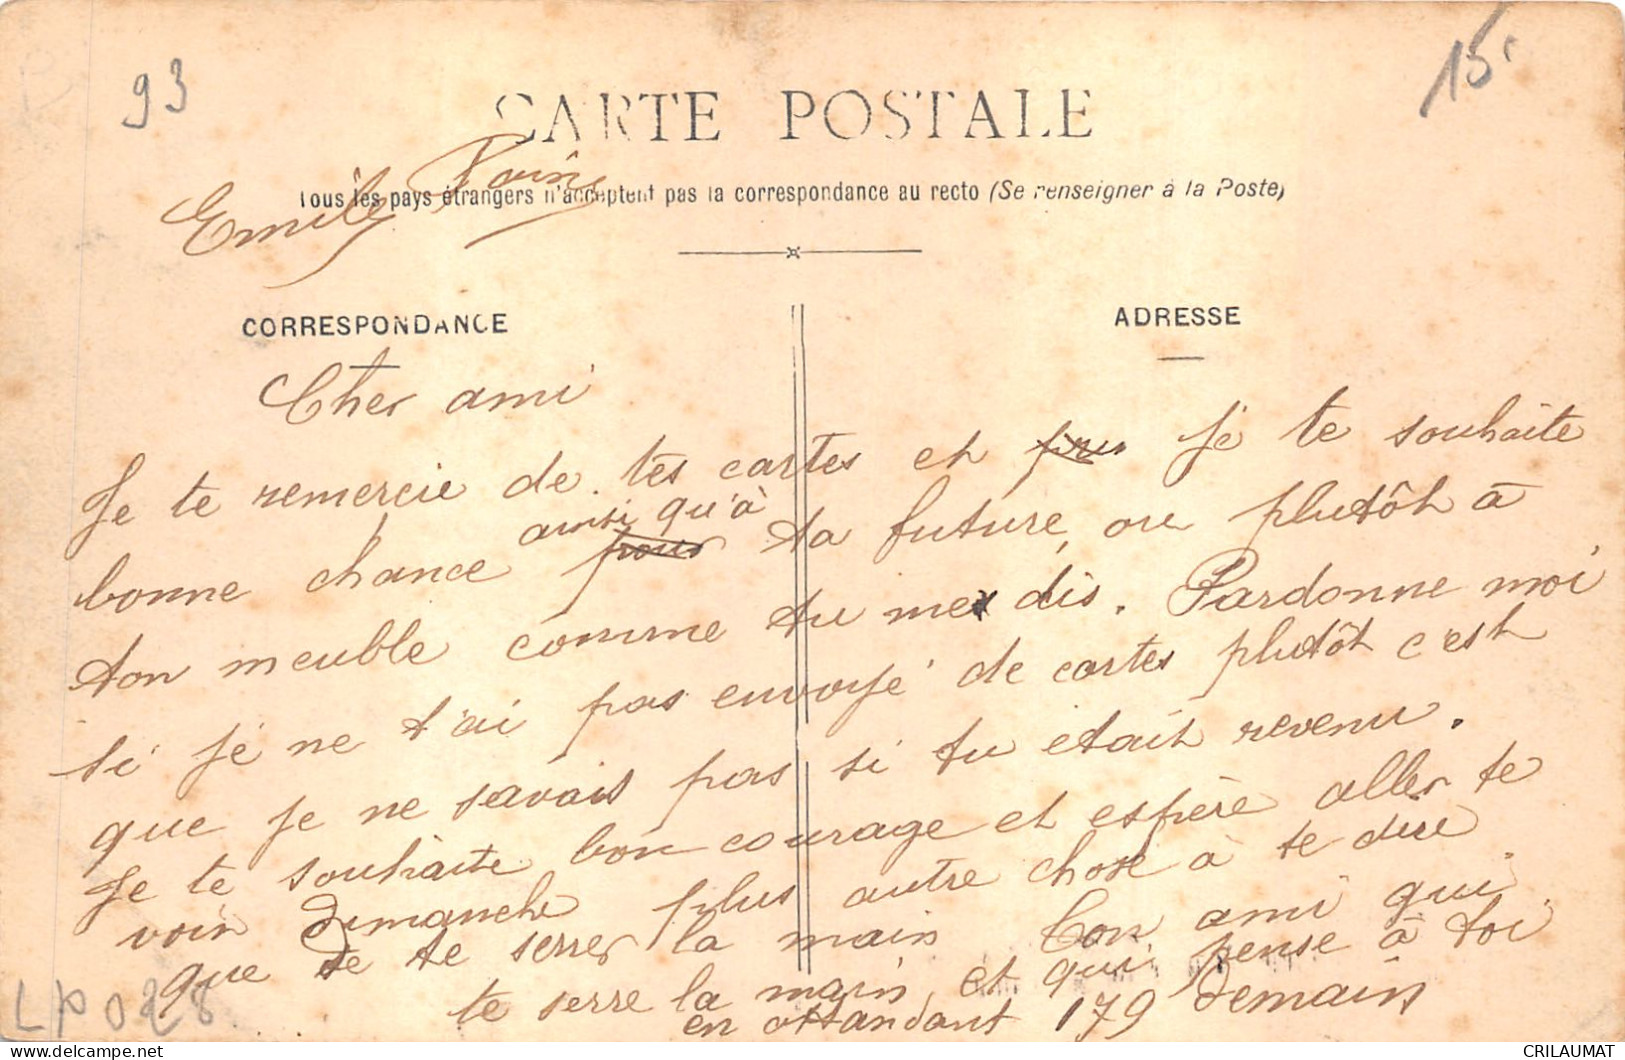 93
15
CARTE POSTALE
Tous les pays étrangers n'acceptent pas la correspondance au recto (Se renseigner à la Poste)
Emile
CORRESPONDANCE
ADRESSE
Cher ami
Je te remercie de tes cartes et je te souhaite
bonne chance pour ainsi qu'à ta future, ou plutôt à
ton meuble comme tu me dis. Pardonne moi
si je ne t'ai pas envoyé de cartes plutôt c'est
que je ne savais pas si tu était revenu.
Je te souhaite bon courage et espère aller te
voir dimanche plus autre chose à te dire
que de te serrer la main Ton ami qui
te serre la main et qui pense à toi
en attandant 179 demain
LP028
CRILAUMAT